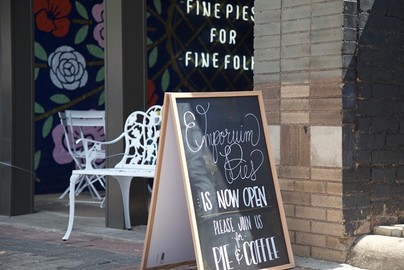 FINE PIES
FOR
FINE FOLK
Emporium
Pies
IS NOW OPEN
PLEASE JOIN US
for
PIE & COFFEE